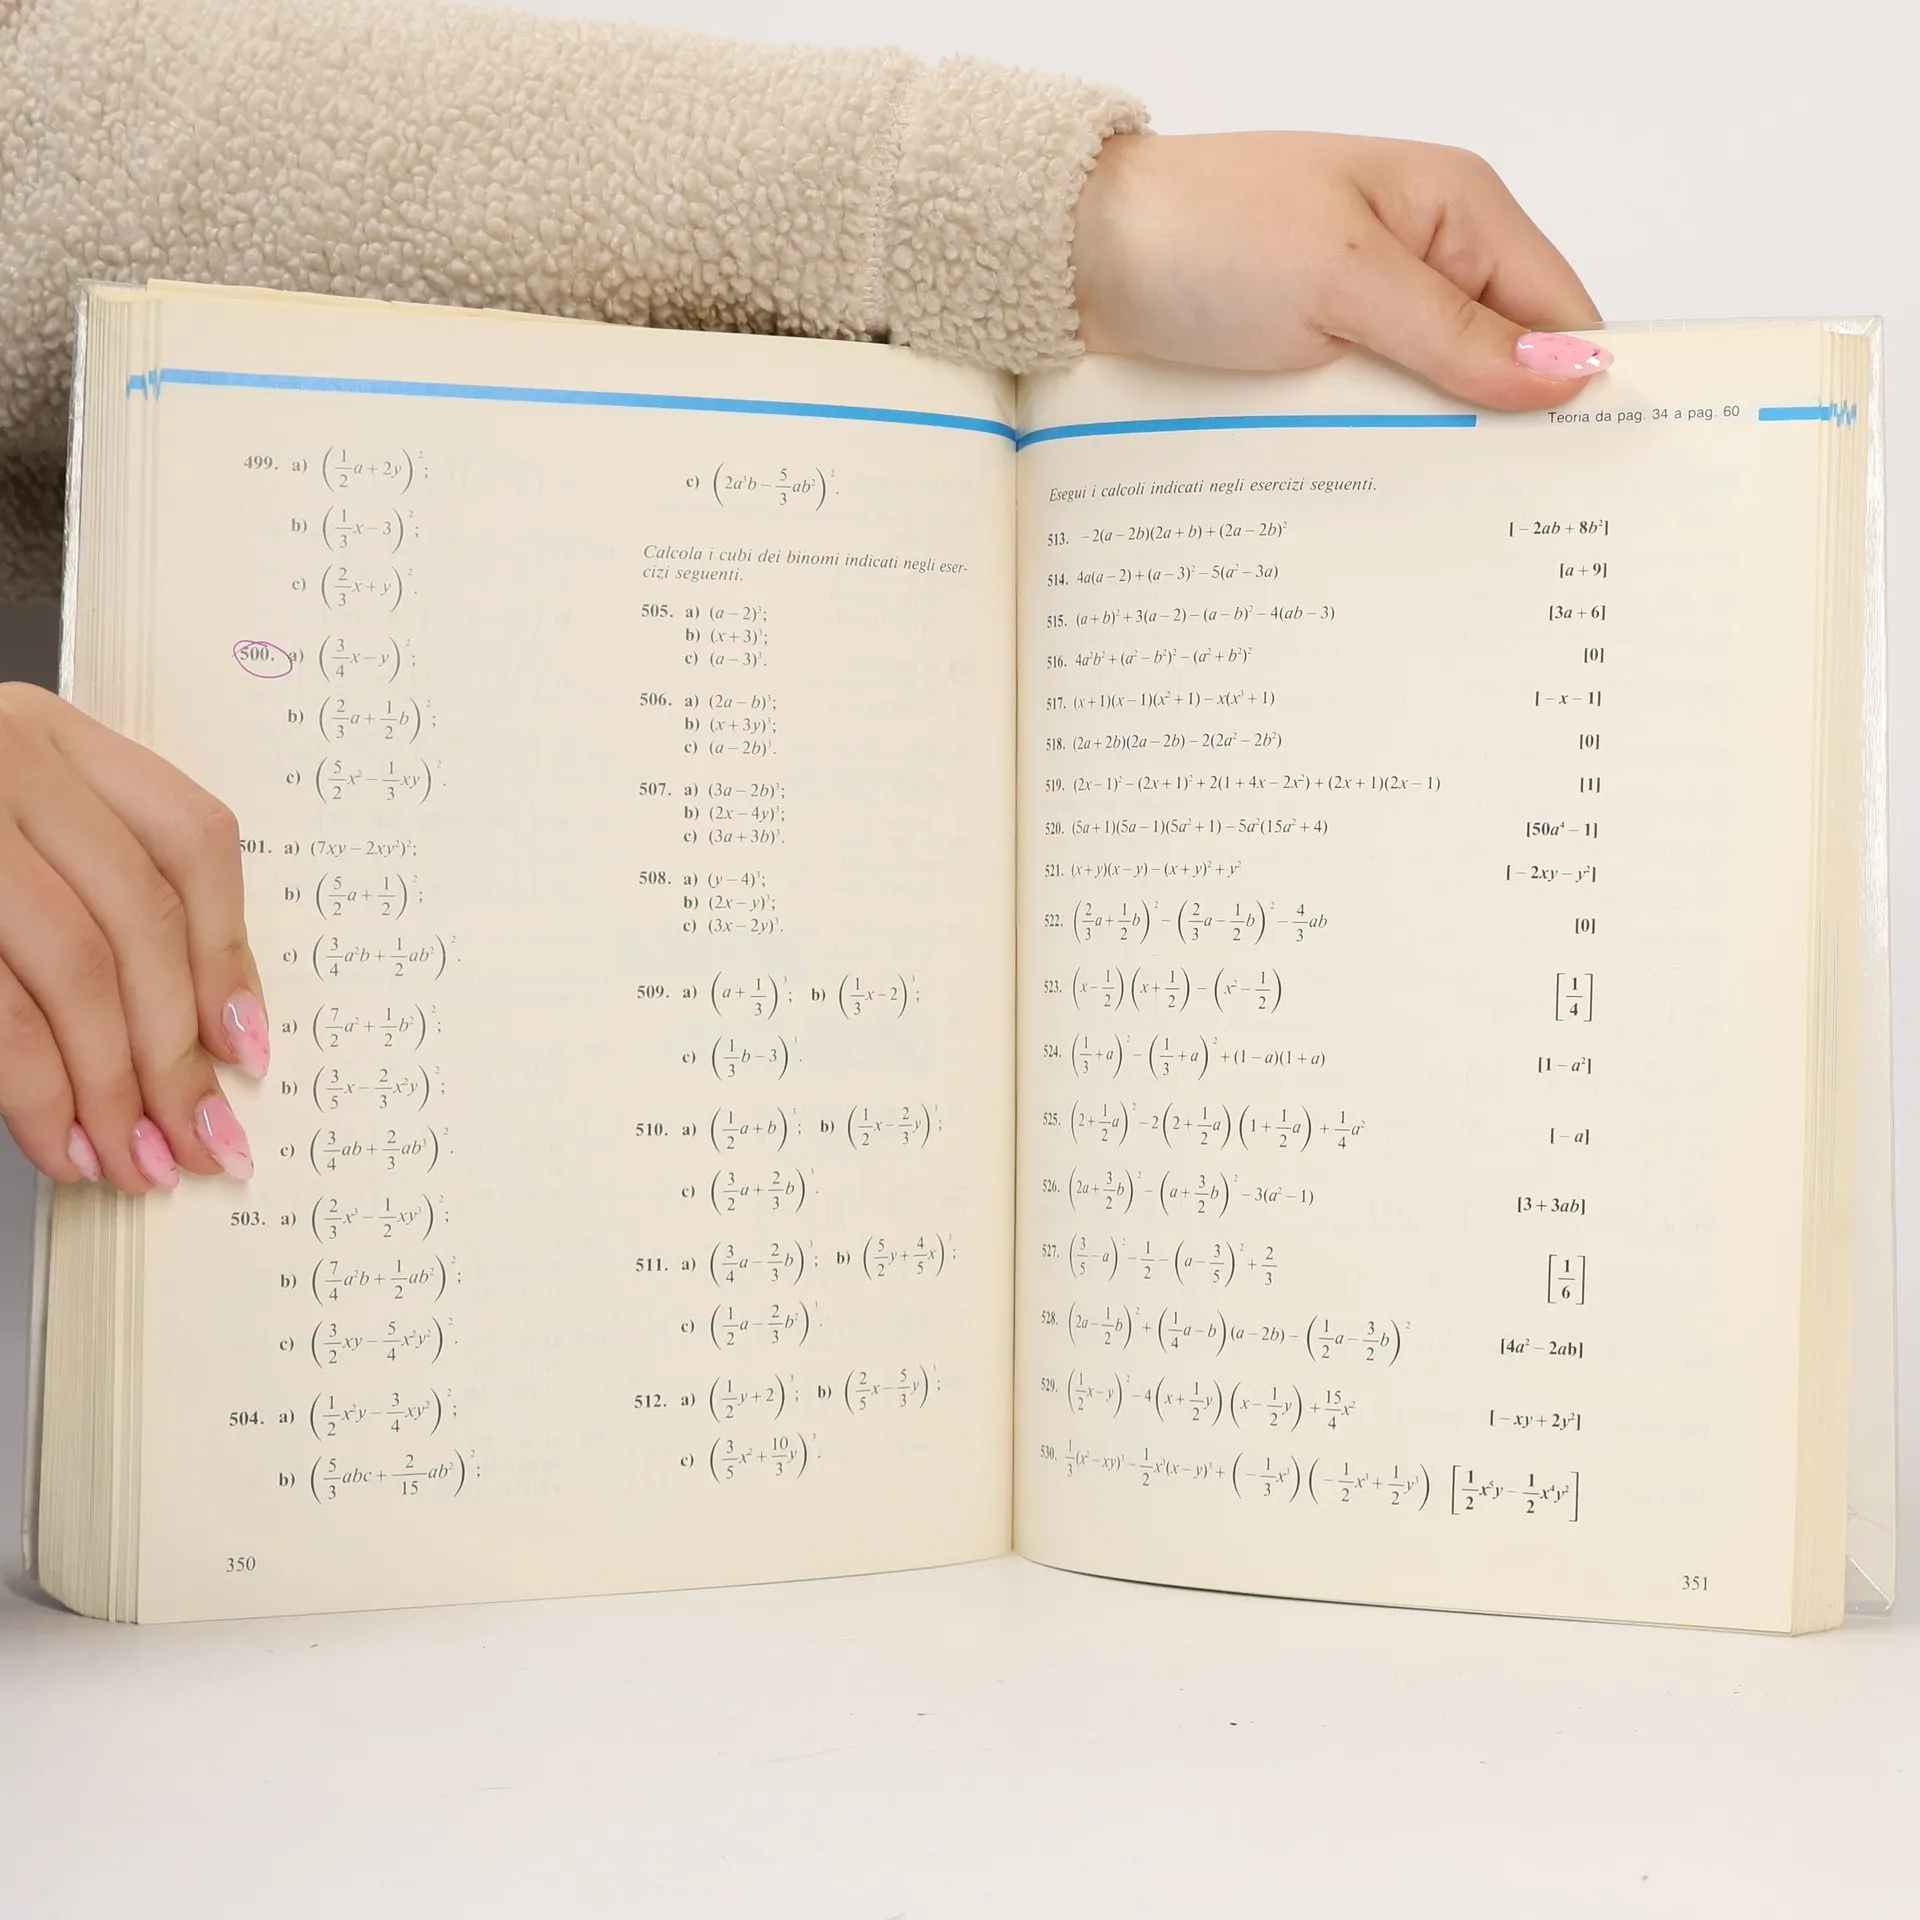 499. a) (1/2 a + 2y)²;
b) (1/3 x − 3)²;
c) (2/3 x + y)².
500. a) (3/4 x − y)²;
b) (2/3 a + 1/2 b)²;
c) (5/2 x² − 1/3 xy)².
501. a) (7xy − 2xy²)²;
b) (5/2 a + 1/2)²;
c) (3/4 a²b + 1/2 ab²)².
a) (7/2 a² + 1/2 b²)²;
b) (3/5 x − 2/3 x²y)²;
c) (3/4 ab + 2/3 ab³)².
503. a) (2/3 x³ − 1/2 xy³)²;
b) (7/4 a²b + 1/2 ab²)²;
c) (3/2 xy − 5/4 x²y²)².
504. a) (1/2 x²y − 3/4 xy²)²;
b) (5/3 abc + 2/15 ab²)²;
350
c) (2a³b − 5/3 ab²)².
Calcola i cubi dei binomi indicati negli eser-
cizi seguenti.
505. a) (a − 2)³;
b) (x + 3)³;
c) (a − 3)³.
506. a) (2a − b)³;
b) (x + 3y)³;
c) (a − 2b)³.
507. a) (3a − 2b)³;
b) (2x − 4y)³;
c) (3a + 3b)³.
508. a) (y − 4)³;
b) (2x − y)³;
c) (3x − 2y)³.
509. a) (a + 1/3)³; b) (1/3 x − 2)³;
c) (1/3 b − 3)³.
510. a) (1/2 a + b)³; b) (1/2 x − 2/3 y)³;
c) (3/2 a + 2/3 b)³.
511. a) (3/4 a − 2/3 b)³; b) (5/2 y + 4/5 x)³;
c) (1/2 a − 2/3 b²)³.
512. a) (1/2 y + 2)³; b) (2/5 x − 5/3 y)³;
c) (3/5 x² + 10/3 y)³.
Teoria da pag. 34 a pag. 60
Esegui i calcoli indicati negli esercizi seguenti.
513. − 2(a − 2b)(2a + b) + (2a − 2b)² [− 2ab + 8b²]
514. 4a(a − 2) + (a − 3)² − 5(a² − 3a) [a + 9]
515. (a + b)² + 3(a − 2) − (a − b)² − 4(ab − 3) [3a + 6]
516. 4a²b² + (a² − b²)² − (a² + b²)² [0]
517. (x + 1)(x − 1)(x² + 1) − x(x³ + 1) [− x − 1]
518. (2a + 2b)(2a − 2b) − 2(2a² − 2b²) [0]
519. (2x − 1)² − (2x + 1)² + 2(1 + 4x − 2x²) + (2x + 1)(2x − 1) [1]
520. (5a + 1)(5a − 1)(5a² + 1) − 5a²(15a² + 4) [50a⁴ − 1]
521. (x + y)(x − y) − (x + y)² + y² [− 2xy − y²]
522. (2/3 a + 1/2 b)² − (2/3 a − 1/2 b)² − 4/3 ab [0]
523. (x − 1/2)(x + 1/2) − (x² − 1/2) [1/4]
524. (1/3 + a)² − (1/3 + a)² + (1 − a)(1 + a) [1 − a²]
525. (2 + 1/2 a)² − 2(2 + 1/2 a)(1 + 1/2 a) + 1/4 a² [− a]
526. (2a + 3/2 b)² − (a + 3/2 b)² − 3(a² − 1) [3 + 3ab]
527. (3/5 − a)² − 1/2 − (a − 3/5)² + 2/3 [1/6]
528. (2a − 1/2 b)² + (1/4 a − b)(a − 2b) − (1/2 a − 3/2 b)² [4a² − 2ab]
529. (1/2 x − y)² − 4(x + 1/2 y)(x − 1/2 y) + 15/4 x² [− xy + 2y²]
530. 1/3 (x² − xy)³ − 1/2 x³(x − y)³ + (− 1/3 x³)(− 1/2 x³ + 1/2 y³) [1/2 x⁵y − 1/2 x⁴y²]
351